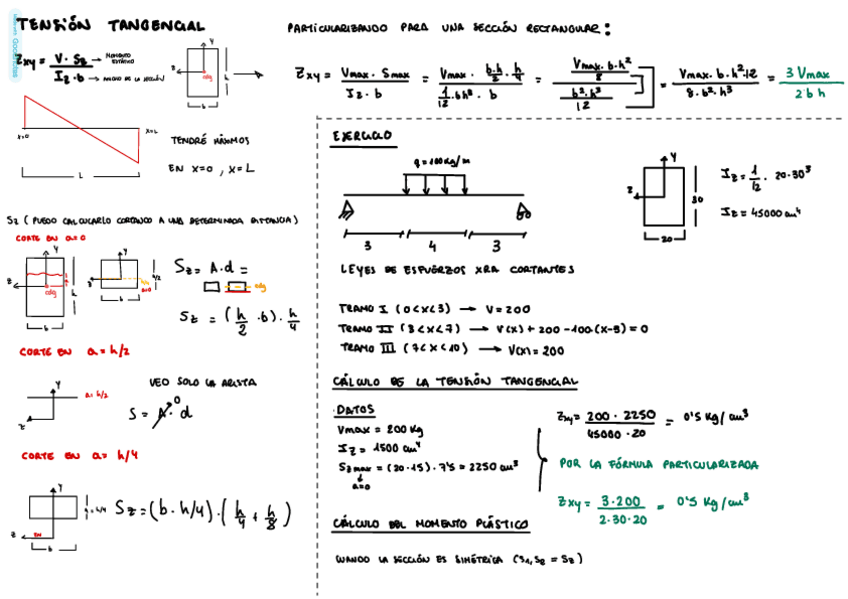 TENSIÓN TANGENCIAL
Zxy = V · Sz → MOMENTO ESTÁTICO
Iz · b → ANCHO DE LA SECCIÓN
Y
Z
cdg
h
b
x=0
x=L
L
TENDRÉ MÁXIMOS
EN X=0 , X=L
Sz ( PUEDO CALCULARLO CORTANDO A UNA DETERMINADA DISTANCIA)
CORTE EN a=0
Y
Z
cdg
h
b
Y
h/2
h/4
a=0
b
Sz = A·d =
cdg
Sz = (h/2 · b) · h/4
CORTE EN a = h/2
Y
a= h/2
Z
VEO SOLO LA ARISTA
S = A · d
0
CORTE EN a= h/4
Y
h/4
Z
EN
b
Sz = (b · h/4) · ( h/4 + h/8 )
PARTICULARIZANDO PARA UNA SECCIÓN RECTANGULAR :
Zxy = Vmax · Smax / Iz · b = Vmax · b·h/2 · h/4 / 1/12 · bh³ · b = Vmax · b·h²/8 / b²·h³/12 = Vmax · b·h²·12 / 8·b²·h³ = 3 Vmax / 2 b h
EJERCICIO
q = 100 Kg/m
3 4 3
Y
Z
30
20
Iz = 1/12 · 20·30³
Iz = 45000 cm⁴
LEYES DE ESFUERZOS XRA CORTANTES
TRAMO I (0<X<3) → V = 200
TRAMO II (3<X<7) → V(X) + 200 -100(X-3) = 0
TRAMO III (7<X<10) → V(X) = 200
CÁLCULO DE LA TENSIÓN TANGENCIAL
· DATOS
Vmax = 200 Kg
Iz = 1500 cm⁴
Sz max = (20·15) · 7'5 = 2250 cm³
a=0
Zxy = 200 · 2250 / 45000 · 20 = 0'5 Kg/cm³
POR LA FÓRMULA PARTICULARIZADA
Zxy = 3·200 / 2·30·20 = 0'5 Kg/cm³
CÁLCULO DEL MOMENTO PLÁSTICO
CUANDO LA SECCIÓN ES SIMÉTRICA (S1, S2 = Sz)